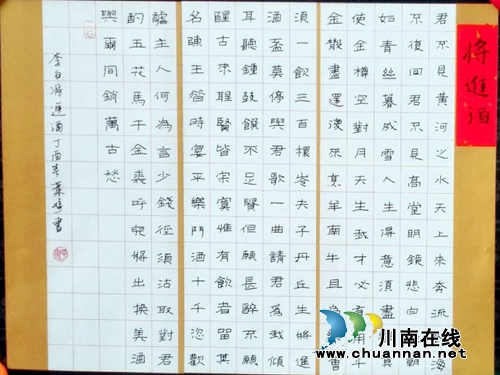 将進酒
君不見黃河之水天上來奔流海
不復回君不見高堂明鏡悲白朝
如青絲暮成雪人生得意須盡莫
使金樽空對月天生我才必有用千
金散盡還復來烹羊宰牛且為會
須一飲三百杯岑夫子丹丘生將進
酒盃莫停與君歌一曲請君為我傾
耳聽鍾鼓饌玉不足貴但願長醉不願
醒古來聖賢皆寂寞惟有飲者留其
名陳王昔時宴平樂鬥酒十千恣歡
謔主人何為言少錢徑須沽取對君
酌五花馬千金裘呼兒將出換美酒
與爾同銷萬古愁
李白將進酒丁酉春葉書
川南在线
www.chuannan.net